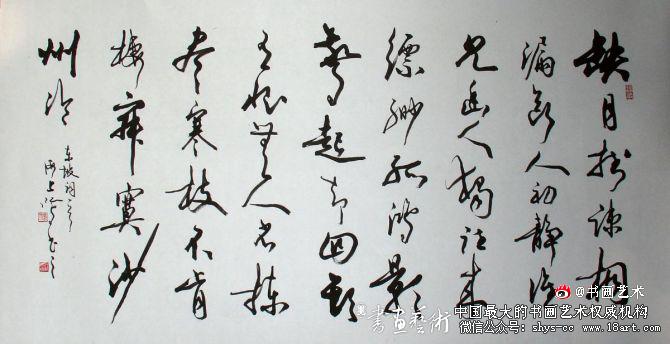 缺月挂疏桐
漏断人初静谁
见幽人独往来
缥缈孤鸿影
惊起却回头
有恨无人省拣
尽寒枝不肯
栖寂寞沙
州冷
东坡词
海上
書畫藝術
@书画艺术
中国最大的书画艺术权威机构
微信公众号：shys-cc www.18art.com